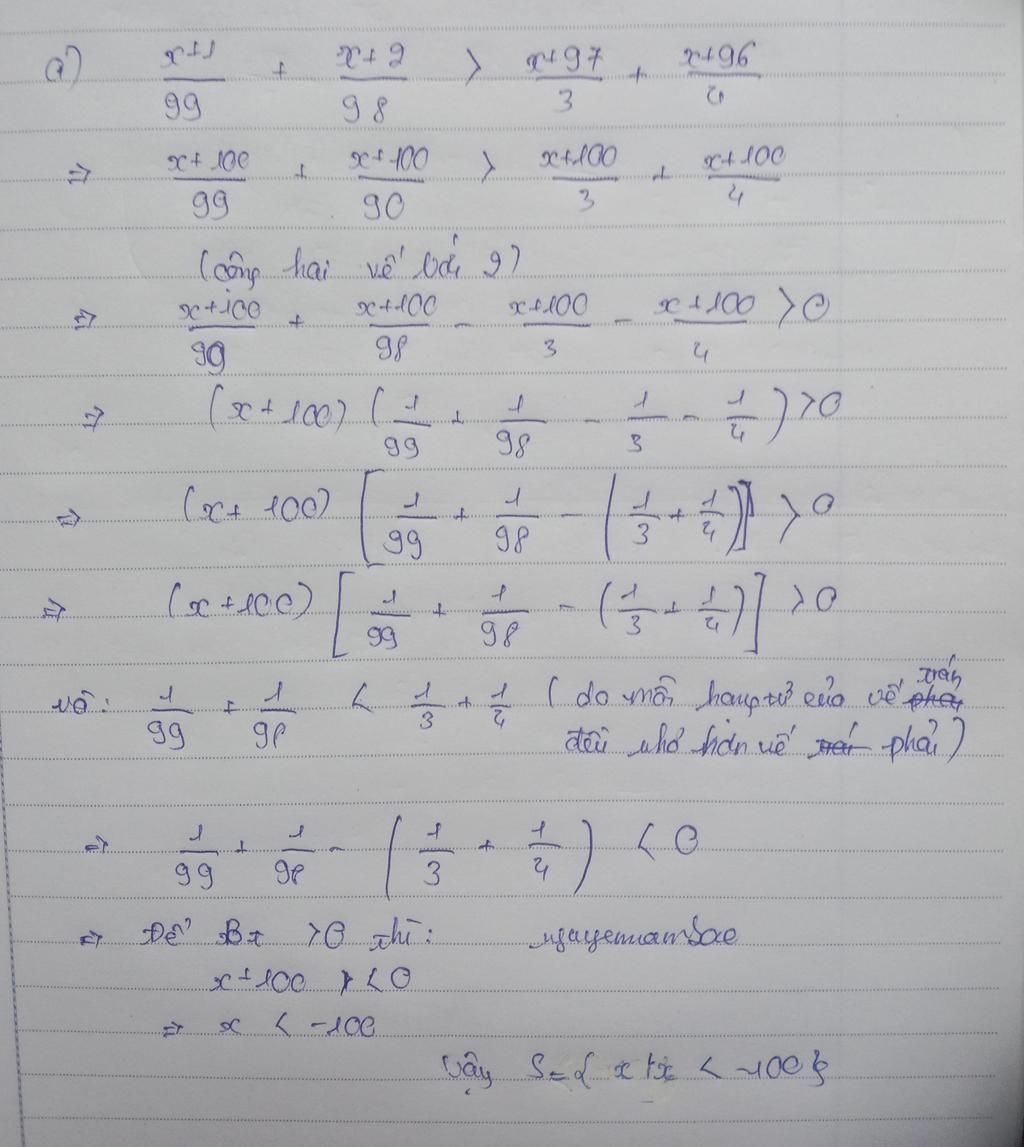 a) (x+1)/99 + (x+2)/98 > (x+97)/3 + (x+96)/4
=> (x+100)/99 + (x+100)/90 > (x+100)/3 + (x+100)/4
(cộng hai vế với 2)
=> (x+100)/99 + (x+100)/98 - (x+100)/3 - (x+100)/4 > 0
=> (x+100) (1/99 + 1/98 - 1/3 - 1/4) > 0
=> (x+100) [1/99 + 1/98 - (1/3 + 1/4)] > 0
=> (x+100) [1/99 + 1/98 - (1/3 + 1/4)] > 0
Vì: 1/99 + 1/98 < 1/3 + 1/4 (do mỗi hạng tử của vế trái
đều nhỏ hơn vế phải)
=> 1/99 + 1/98 - (1/3 + 1/4) < 0
=> Để Bt > 0 thì: nguyennamSao
x+100 < 0
=> x < -100
Vậy S = { x | x < -100 }